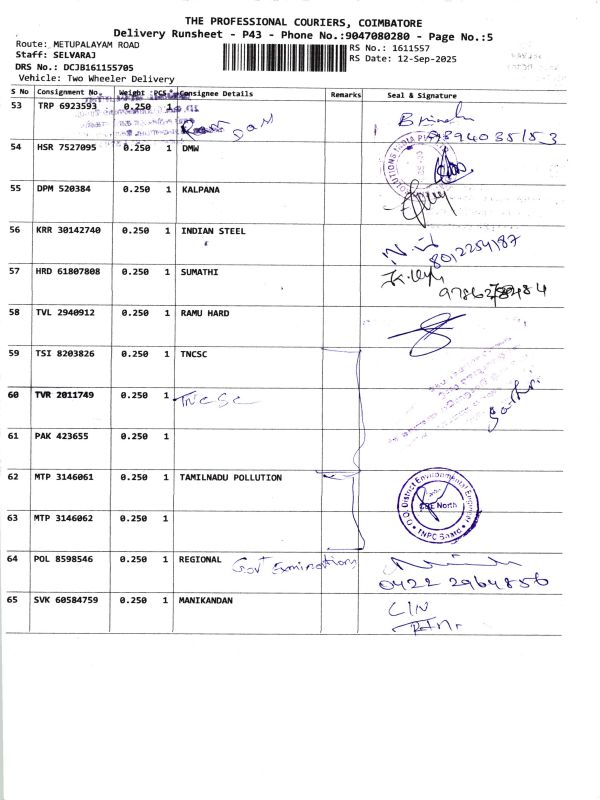 THE PROFESSIONAL COURIERS, COIMBATORE
Delivery Runsheet - P43 - Phone No.:9047080280 - Page No.:5
Route: METUPALAYAM ROAD RS No.: 1611557
Staff: SELVARAJ RS Date: 12-Sep-2025
DRS No.: DCJB161155705
Vehicle: Two Wheeler Delivery
S No Consignment No. Weight PCS Consignee Details Remarks Seal & Signature
53 TRP 6923593 0.250 1
54 HSR 7527095 0.250 1 DMW
55 DPM 520384 0.250 1 KALPANA
56 KRR 30142740 0.250 1 INDIAN STEEL
8012254187
57 HRD 61807808 0.250 1 SUMATHI
58 TVL 2940912 0.250 1 RAMU HARD
59 TSI 8203826 0.250 1 TNCSC
60 TVR 2011749 0.250 1 TNCSC
61 PAK 423655 0.250 1
62 MTP 3146061 0.250 1 TAMILNADU POLLUTION
O/O. District Environmental Engineer
CBE North
TNPC Board
63 MTP 3146062 0.250 1
64 POL 8598546 0.250 1 REGIONAL Govt Examinations
0422 2964856
65 SVK 60584759 0.250 1 MANIKANDAN